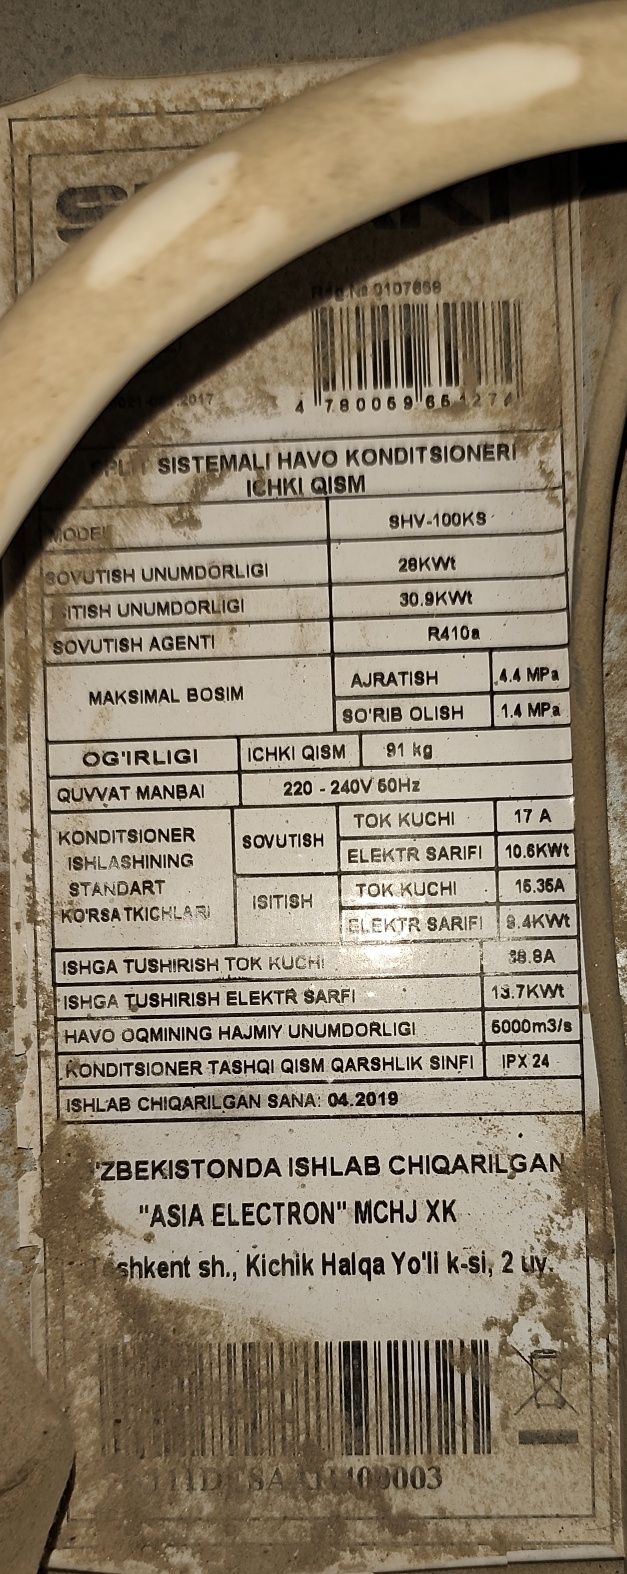 SPLIT SISTEMALI HAVO KONDITSIONERI
ICHKI QISM
MODEL SHV-100KS
SOVUTISH UNUMDORLIGI 28KWt
ISITISH UNUMDORLIGI 30.9KWt
SOVUTISH AGENTI R410a
MAKSIMAL BOSIM AJRATISH 4.4 MPa
SO'RIB OLISH 1.4 MPa
OG'IRLIGI ICHKI QISM 91 kg
QUVVAT MANBAI 220 - 240V 50Hz
KONDITSIONER ISHLASHINING STANDART KO'RSATKICHLARI
SOVUTISH TOK KUCHI 17 A
ELEKTR SARIFI 10.6KWt
ISITISH TOK KUCHI 15.35A
ELEKTR SARIFI 9.4KWt
ISHGA TUSHIRISH TOK KUCHI 38.8A
ISHGA TUSHIRISH ELEKTR SARFI 13.7KWt
HAVO OQMINING HAJMIY UNUMDORLIGI 5000m3/s
KONDITSIONER TASHQI QISM QARSHLIK SINFI IPX 24
ISHLAB CHIQARILGAN SANA: 04.2019
'ZBEKISTONDA ISHLAB CHIQARILGAN
"ASIA ELECTRON" MCHJ XK
shkent sh., Kichik Halqa Yo'li k-si, 2 uy.